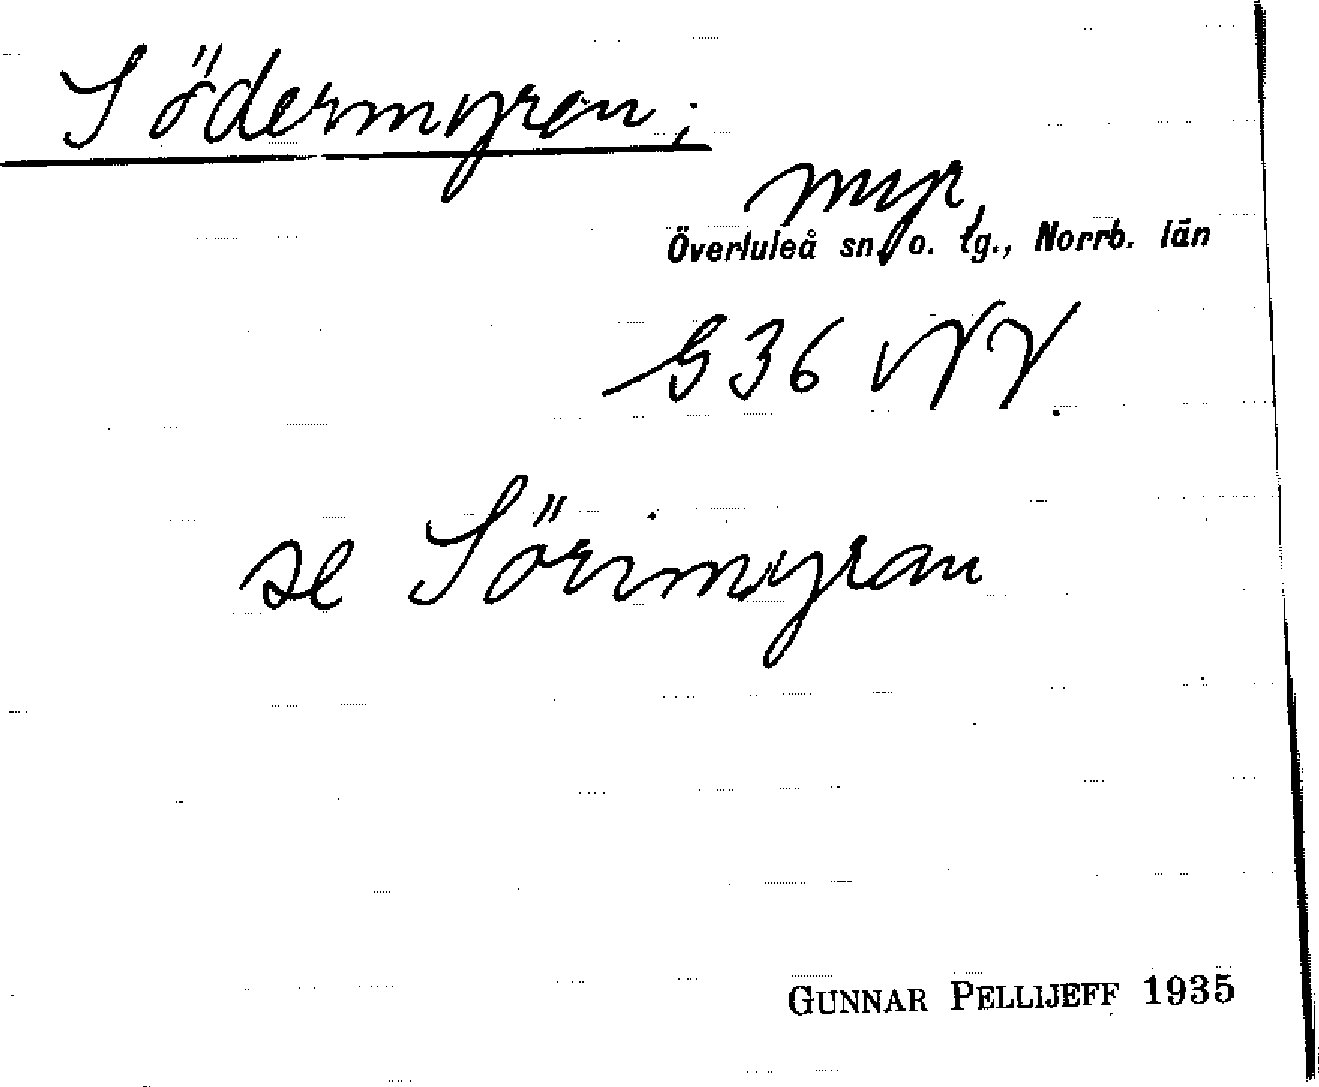 Södermyran;
myr,
Överluleå sn o. tg., Norrb. län
G 36 NV.
se Sörimyran
GUNNAR PELLIJEFF 1935